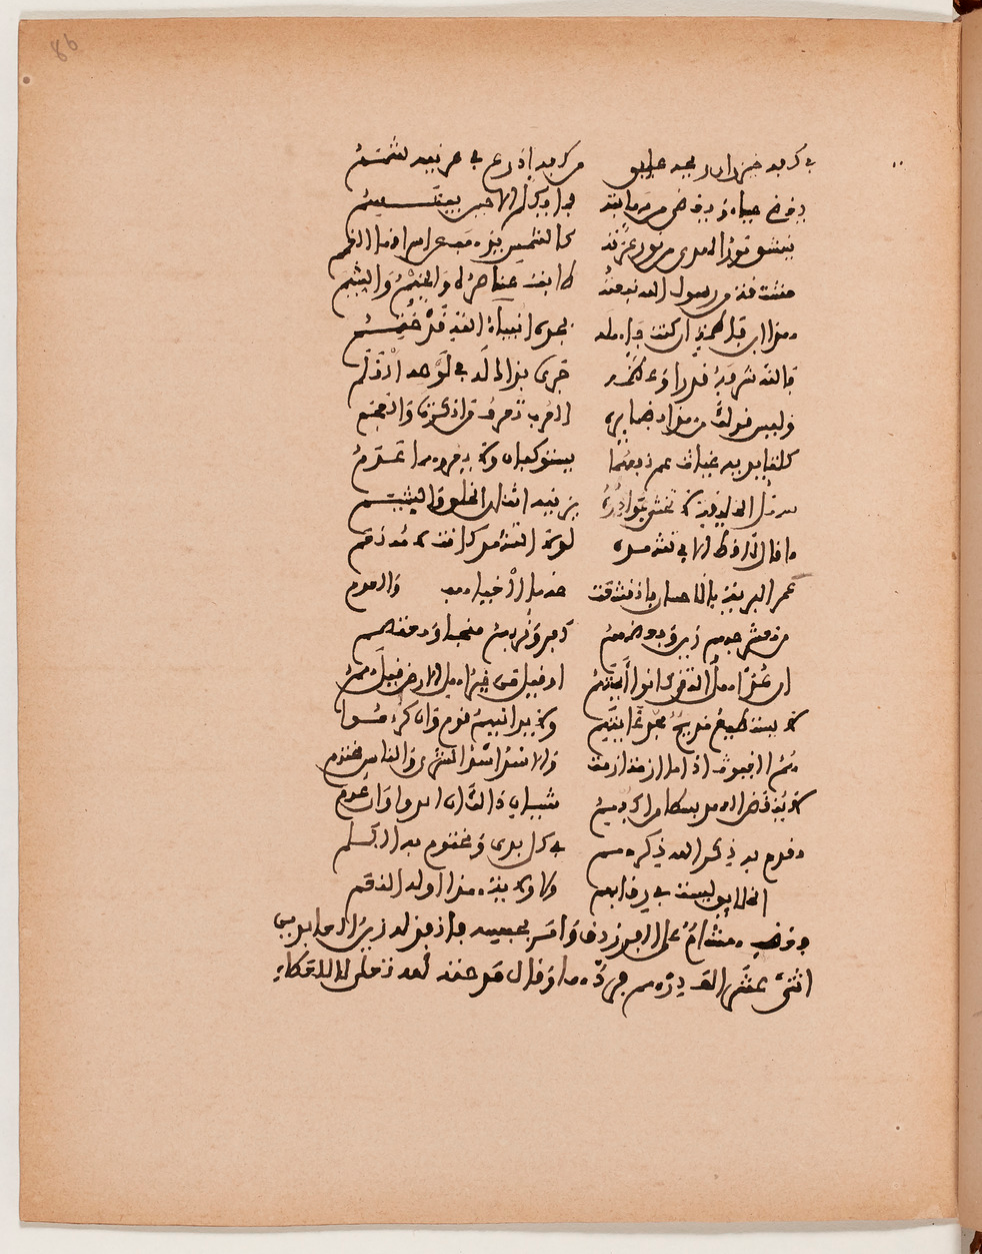 86
في كفه خيزران ريحه عبق من كفه اروع في عرنينه شمم
يغضي حياء ويغضى من مهابته فما يكلم الا حين يبتسم
ينشق نور الهدى من نور غرته كالشمس ينجاب عن
منشقة من رسول الله نبعته طابت عناصره والخيم والشيم
هذا ابن فاطمة ان كنت جاهله بجده انبياء الله قد ختموا
فالله شرفه قدرا وعظمه جرى بذاك له في لوحه القلم
وليس قولك من هذا بضايره العرب تعرف من انكرت والعجم
كلتا يديه غياث عم نفعهما يستوكفان ولا يعروهما عدم
سهل الخليقة لا تخشى بوادره يزينه اثنان الخلق والشيم
ما قال لا قط الا في تشهده لولا التشهد كانت لاءه نعم
عم البرية بالاحسان فانقشعت والعدم
من معشر حبهم دين وبغضهم كفر وقربهم منجا ومعتصم
ان عد اهل التقى كانوا ائمتهم او قيل من خير اهل الارض قيل هم
لا يستطيع غايتهم ولا يدانيهم قوم وان كرموا
هم الغيوث اذا ما ازمة ازمت والاسد اسد الشرى والناس محتدم
لا ينقص العسر بسطا من اكفهم سيان ذالك ان اثروا وان عدموا
مقدم بعد ذكر الله ذكرهم في كل بدء ومختوم به الكلم
الخلايق ليست في رقابهم هذا اوله النعم
فغضب هشام على الفرزدق وامر بحبسه فانفذ له زين العابدين
اثنى عشر الف درهم فردها وقال مدحته لله تعلى لا للعطاء